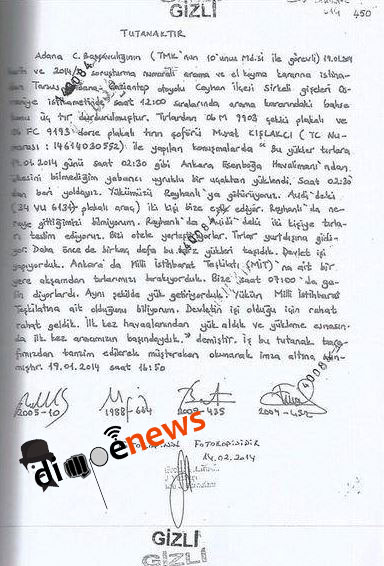 GİZLİ
14 450
TUTANAKTIR
Adana C. Başsavcılığının (TMK'nun 10'unu Md.si ile görevli) 19.01.2014
ve 2014/ soruşturma numaralı arama ve el koyma kararına istina
Tarsus Adana Gaziantep otoyolu Ceyhan ilçesi Sirkeli gişeleri Os-
maniye istikametinde saat 12:00 sıralarında arama kararındaki bahse
üç tır durdurulmuştur. Tırlardan 06 M 9903 çekici plakalı ve
FC 9193 dorse plakalı tırın şoförü Murat KIŞLAKCI (TC Nu-
marası: 14614030552) ile yapılan konuşmalarda "Bu yükler tırlara
19.01.2014 günü saat 02:30 gibi Ankara Esenboğa Havalimanı'ndan
ülkesini bilmediğim yabancı uyruklu bir uçaktan yüklendi. Saat 02:30'
dan beri yoldayız. Yükümüzü Reyhanlı'ya götürüyoruz. Audi'deki
(34 VU 6134 plakalı araç) iki kişi bize eşlik ediyor. Reyhanlı'da ne-
reye gittiğimizi bilmiyorum. Reyhanlı'da Audi'deki iki kişiye tırla-
rı teslim ediyoruz. Bizi otele yerleştiriyorlar. Tırlar yurtdışına gidi-
yor. Daha önce de birkaç defa bu kez yükleri taşıdık. Devlet işi
yapıyorduk. Ankara'da Milli İstihbarat Teşkilatı (MİT)'na ait bir
yere akşamdan tırlarımızı bırakıyorduk. Bize saat 07:00'da ga-
lin diyorlardı. Aynı şekilde yük getiriyorduk. Yükün Milli İstihbarat
Teşkilatına ait olduğunu biliyorum. Devletin işi olduğu için rahat
rahat geldik. İlk kez havaalanından yük aldık ve yükleme esnasın-
da ilk kez aracımızın başındaydık." demiştir. İş bu tutanak tara-
fımızdan tanzim edilerek müştereken okunarak imza altına alın-
mıştır. 19.01.2014 saat 16:50
2005-10 1988-684 2003-435 2004-432
dimpenews
FOTOKOPİSİDİR
14.02.2014
GİZLİ
GİZLİ